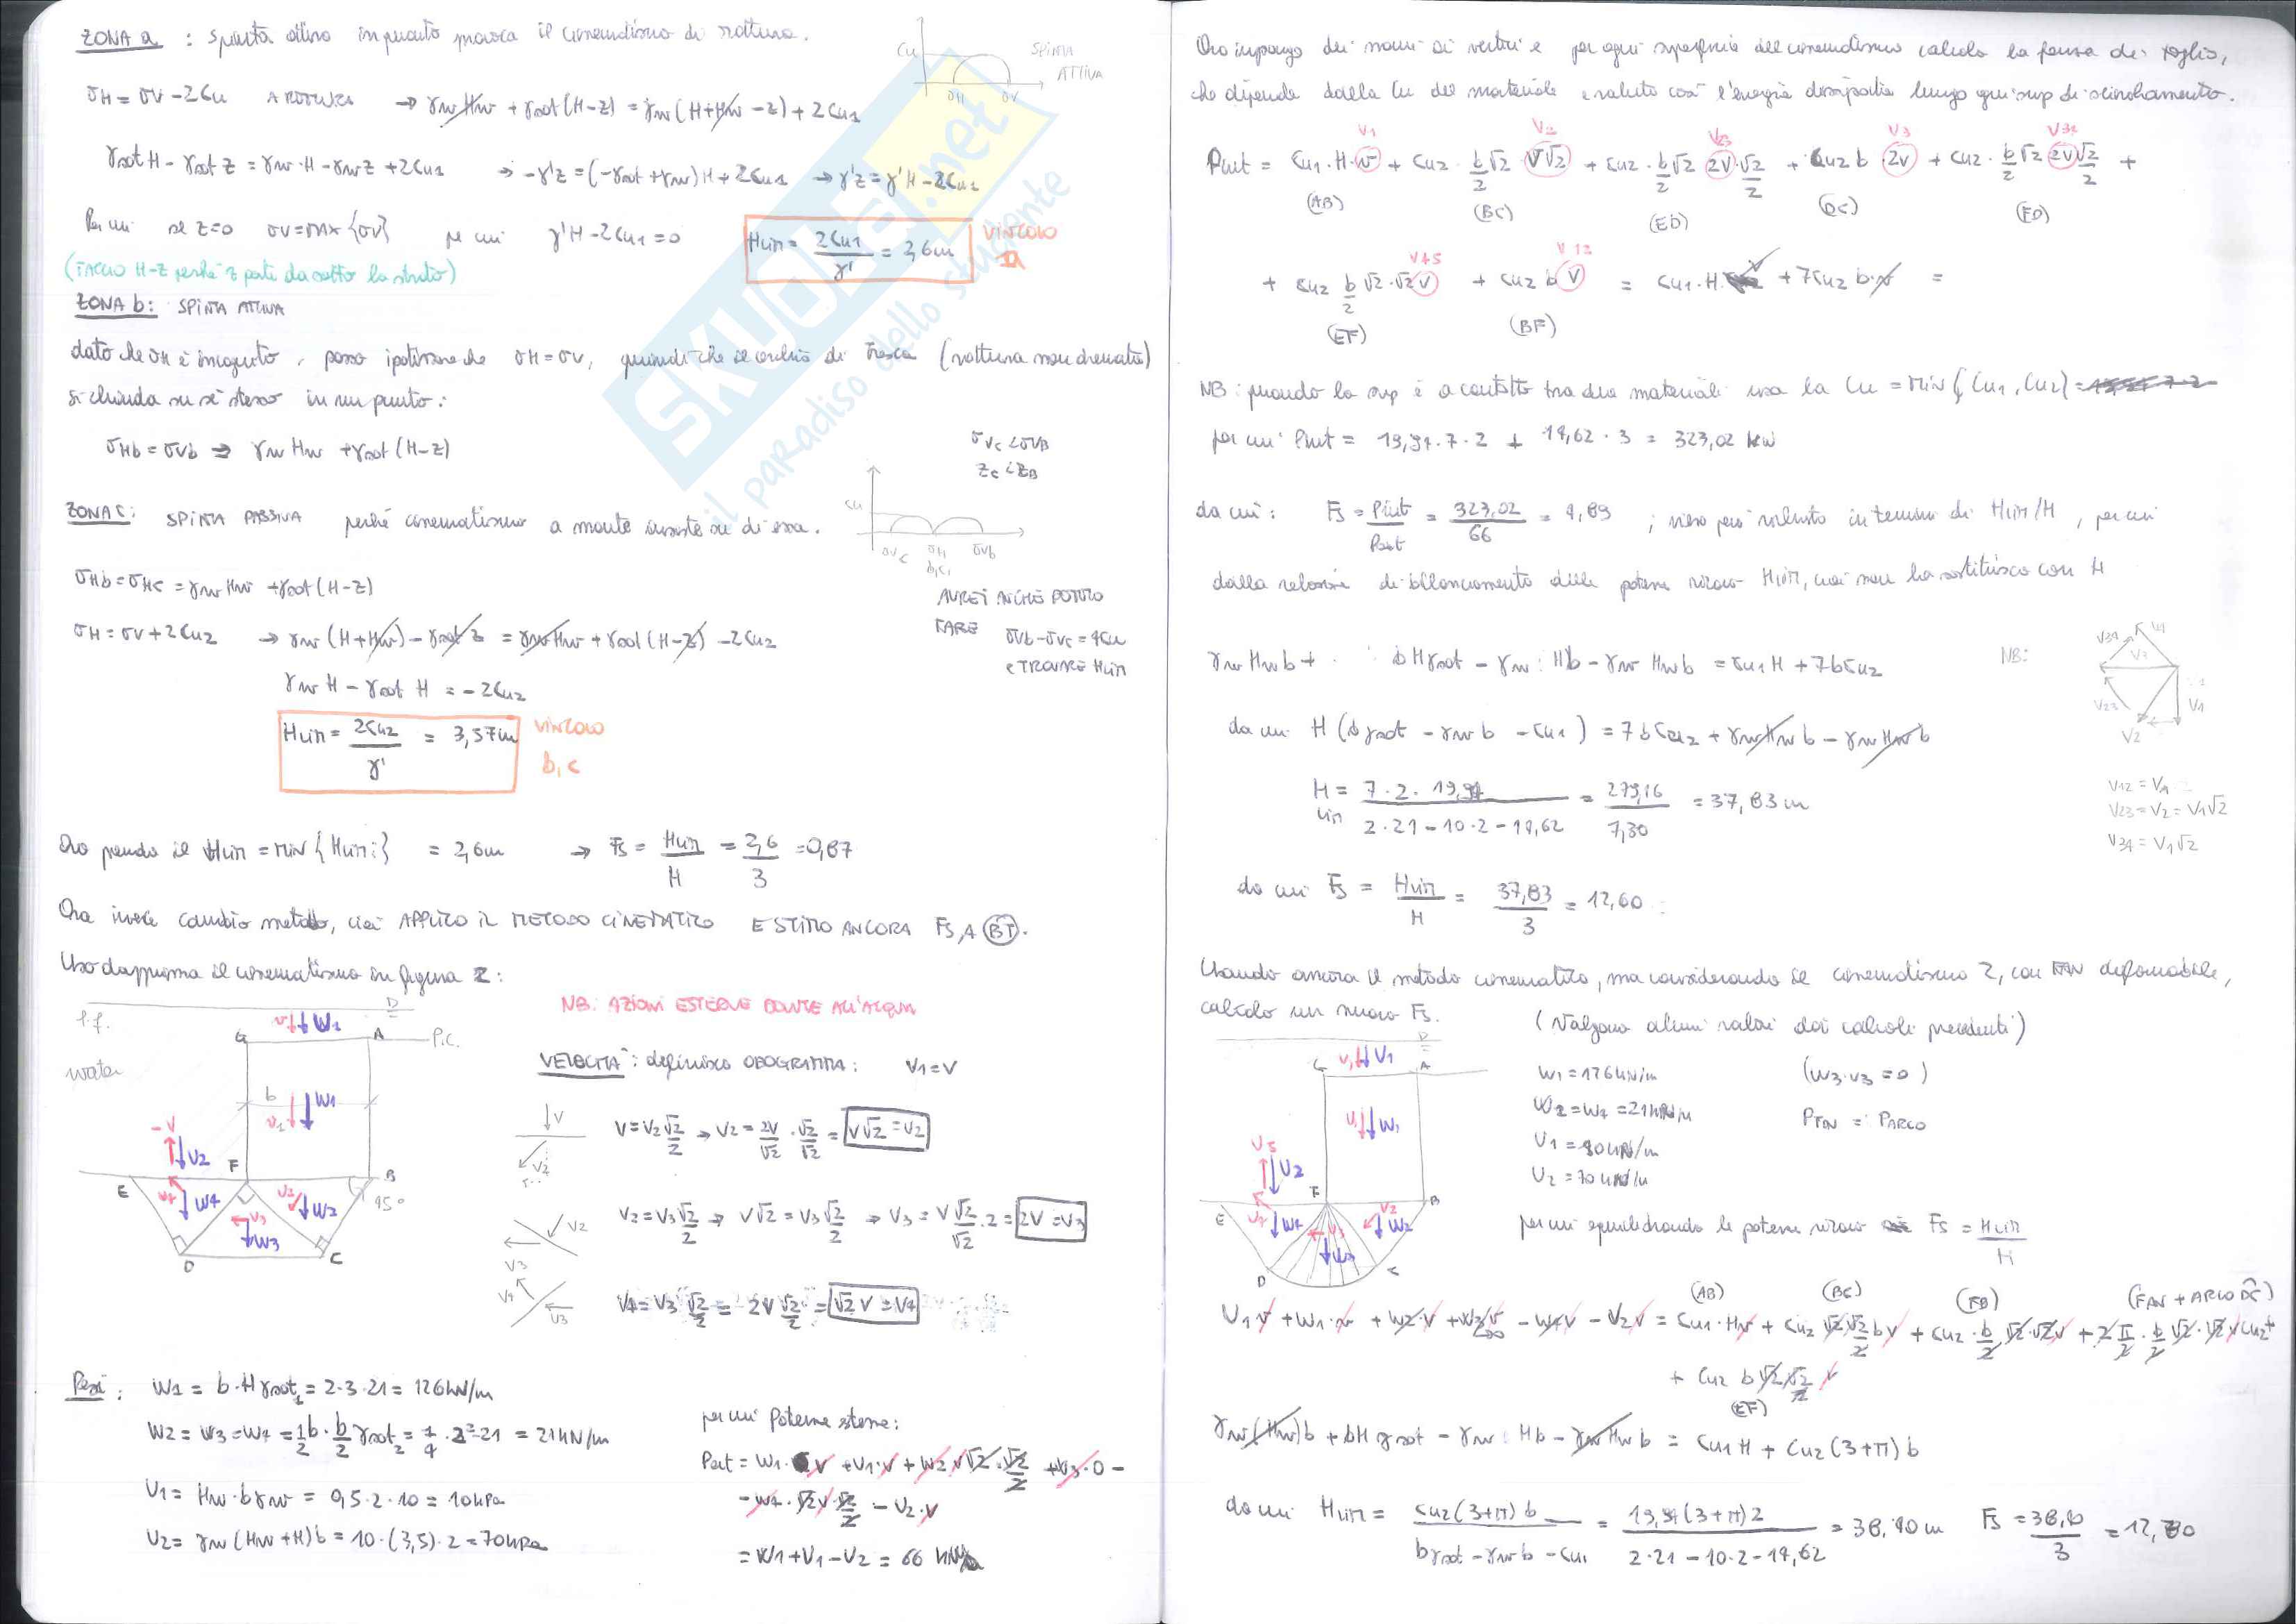 ZONA a : spinta attiva in quanto provoca il cinematismo di rottura.
Cu
SPINTA
ATTIVA
σH σV
σH = σV - 2Cu A ROTTURA → γw Hw + γsat (H-z) = γw (H+Hw-z) + 2Cu1
γsat H - γsat z = γw·H - γw z + 2Cu1 → -γ'z = (-γsat + γw) H + 2Cu1 → γ'z = γ'H - 2Cu1
Per cui se z=0 σV = MAX {σV} per cui γ'H - 2Cu1 = 0
Hlim = 2Cu1/γ' = 2,6m VINCOLO a
(FACCIO H-Z perché z parte da sotto lo strato)
ZONA b: SPINTA ATTIVA
dato che σH è incognito, posso ipotizzare che σH = σV, quindi che il cerchio di Tresca (rottura non drenata)
si chiuda su sé stesso in un punto:
σHb = σVb ⇒ γw Hw + γsat (H-z)
σVc < σVB
Zc < ZB
ZONA C: SPINTA PASSIVA perché cinematismo a monte insiste su di essa.
Cu
σVc σH σVb
b,c
σHb = σHc = γw Hw + γsat (H-z)
σH = σV + 2Cu2 → γw (H+Hw) - γsat z = γw Hw + γsat (H-z) - 2Cu2
γw H - γsat H = - 2Cu2
AVREI ANCHE POTUTO
FARE σVb - σVc = 4Cu
e TROVARE Hlim
Hlim = 2Cu2/γ' = 3,57m VINCOLO b, c
Ora prendo il Hlim = MIN {Hlim i} = 2,6m → Fs = Hlim/H = 2,6/3 = 0,87
Ora invece cambio metodo, cioè APPLICO IL METODO CINEMATICO E STIMO ANCORA FS, A BT.
Uso dapprima il cinematismo in figura 2:
NB: AZIONI ESTERNE DOVUTE ALL'ACQUA
p.f.
water
P.C.
VELOCITÀ: definisco ODOGRAFMA: V1 = V
V = V2 √2/2 → V2 = 2V/√2 · √2/√2 = V√2 = V2
V2 = V3 √2/2 → V√2 = V3 √2/2 → V3 = V √2/√2 · 2 = 2V = V3
V4 = V3 √2/2 = 2V √2/2 = √2 V = V4
Pesi: W1 = b·H γsat1 = 2·3·21 = 126 kN/m
W2 = W3 = W4 = 1/2 b · b/2 γsat2 = 1/4 · 2²·21 = 21 kN/m
U1 = Hw·b γw = 0,5·2·10 = 10 kPa
U2 = γw (Hw+H) b = 10·(3,5)·2 = 70 kPa
per cui Potenze esterne:
Pest = W1·V + U1·V + W2 V√2·√2/2 + W3·0 -
- W4·√2 V √2/2 - U2·V
= W1 + U1 - U2 = 66
Ora impongo dei nomi ai vertici e per ogni superficie del cinematismo calcolo la forza di taglio,
che dipende dalla Cu del materiale e valuto così l'energia dissipata lungo ogni sup di scivolamento.
V1 V2 V23 V3 V34
Pint = Cu1·H·V + Cu2·b/2 √2 V√2 + Cu2·b/2 √2 2V·√2/2 + Cu2 b·2V + Cu2·b/2 √2 2V √2/2 +
(AB) (BC) (ED) (DC) (FD)
V45 V12
+ Cu2 b/2 √2·√2 V + Cu2 b V = Cu1·H V + 7Cu2 b·V =
(EF) (BF)
NB: quando la sup è a contatto tra due materiali usa la Cu = MIN {Cu1, Cu2}
per cui Pint = 19,94·7·2 + 14,62·3 = 323,02 kW
da cui: Fs = Pint/Pest = 323,02/66 = 4,89 ; viene però valutato in termini di Hlim/H, per cui
dalla relazione di bilanciamento delle potenze ricavo Hlim, cioè non ho sostituisco con H
γw Hw b + b H γsat - γw Hb - γw Hw b = Cu1 H + 7b Cu2
NB:
da cui H (b γsat - γw b - Cu1) = 7b Cu2 + γw Hw b - γw Hw b
Hlim = 7·2·19,94 / 2·21-10·2-14,62 = 279,16/7,30 = 37,83 m
V12 = V1
V23 = V2 = V1√2
V34 = V1√2
da cui Fs = Hlim/H = 37,83/3 = 12,60
Usando ancora il metodo cinematico, ma considerando il cinematismo 2, con FAN deformabile,
calcolo un nuovo Fs. (Valgono alcuni valori dai calcoli precedenti)
W1 = 126 kN/m (W3·V3 = 0)
W2 = W4 = 21 kN/m PFAN = PARCO
U1 = 10 kN/m
U2 = 70 kN/m
per cui equilibrando le potenze ricavo Fs = Hlim/H
(AB) (BC) (FB) (FAN + ARCO DC)
U1 V + W1·V + W2·V + W3 V - W4 V - U2 V = Cu1·H V + Cu2 √2 √2/2 b V + Cu2·b/2 √2·√2 V + 2 π/2·b/2 √2·√2 V Cu2 +
+ Cu2 b √2 √2/2 V
(EF)
γw (Hw) b + bH γsat - γw Hb - γw Hw b = Cu1 H + Cu2 (3+π) b
da cui Hlim = Cu2 (3+π) b / b γsat - γw b - Cu1 = 19,94 (3+π) 2 / 2·21-10·2-14,62 = 38,40 m Fs = 38,40/3 = 12,80